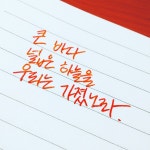 큰 바다
넓은 하늘을
우리는 가졌노라.